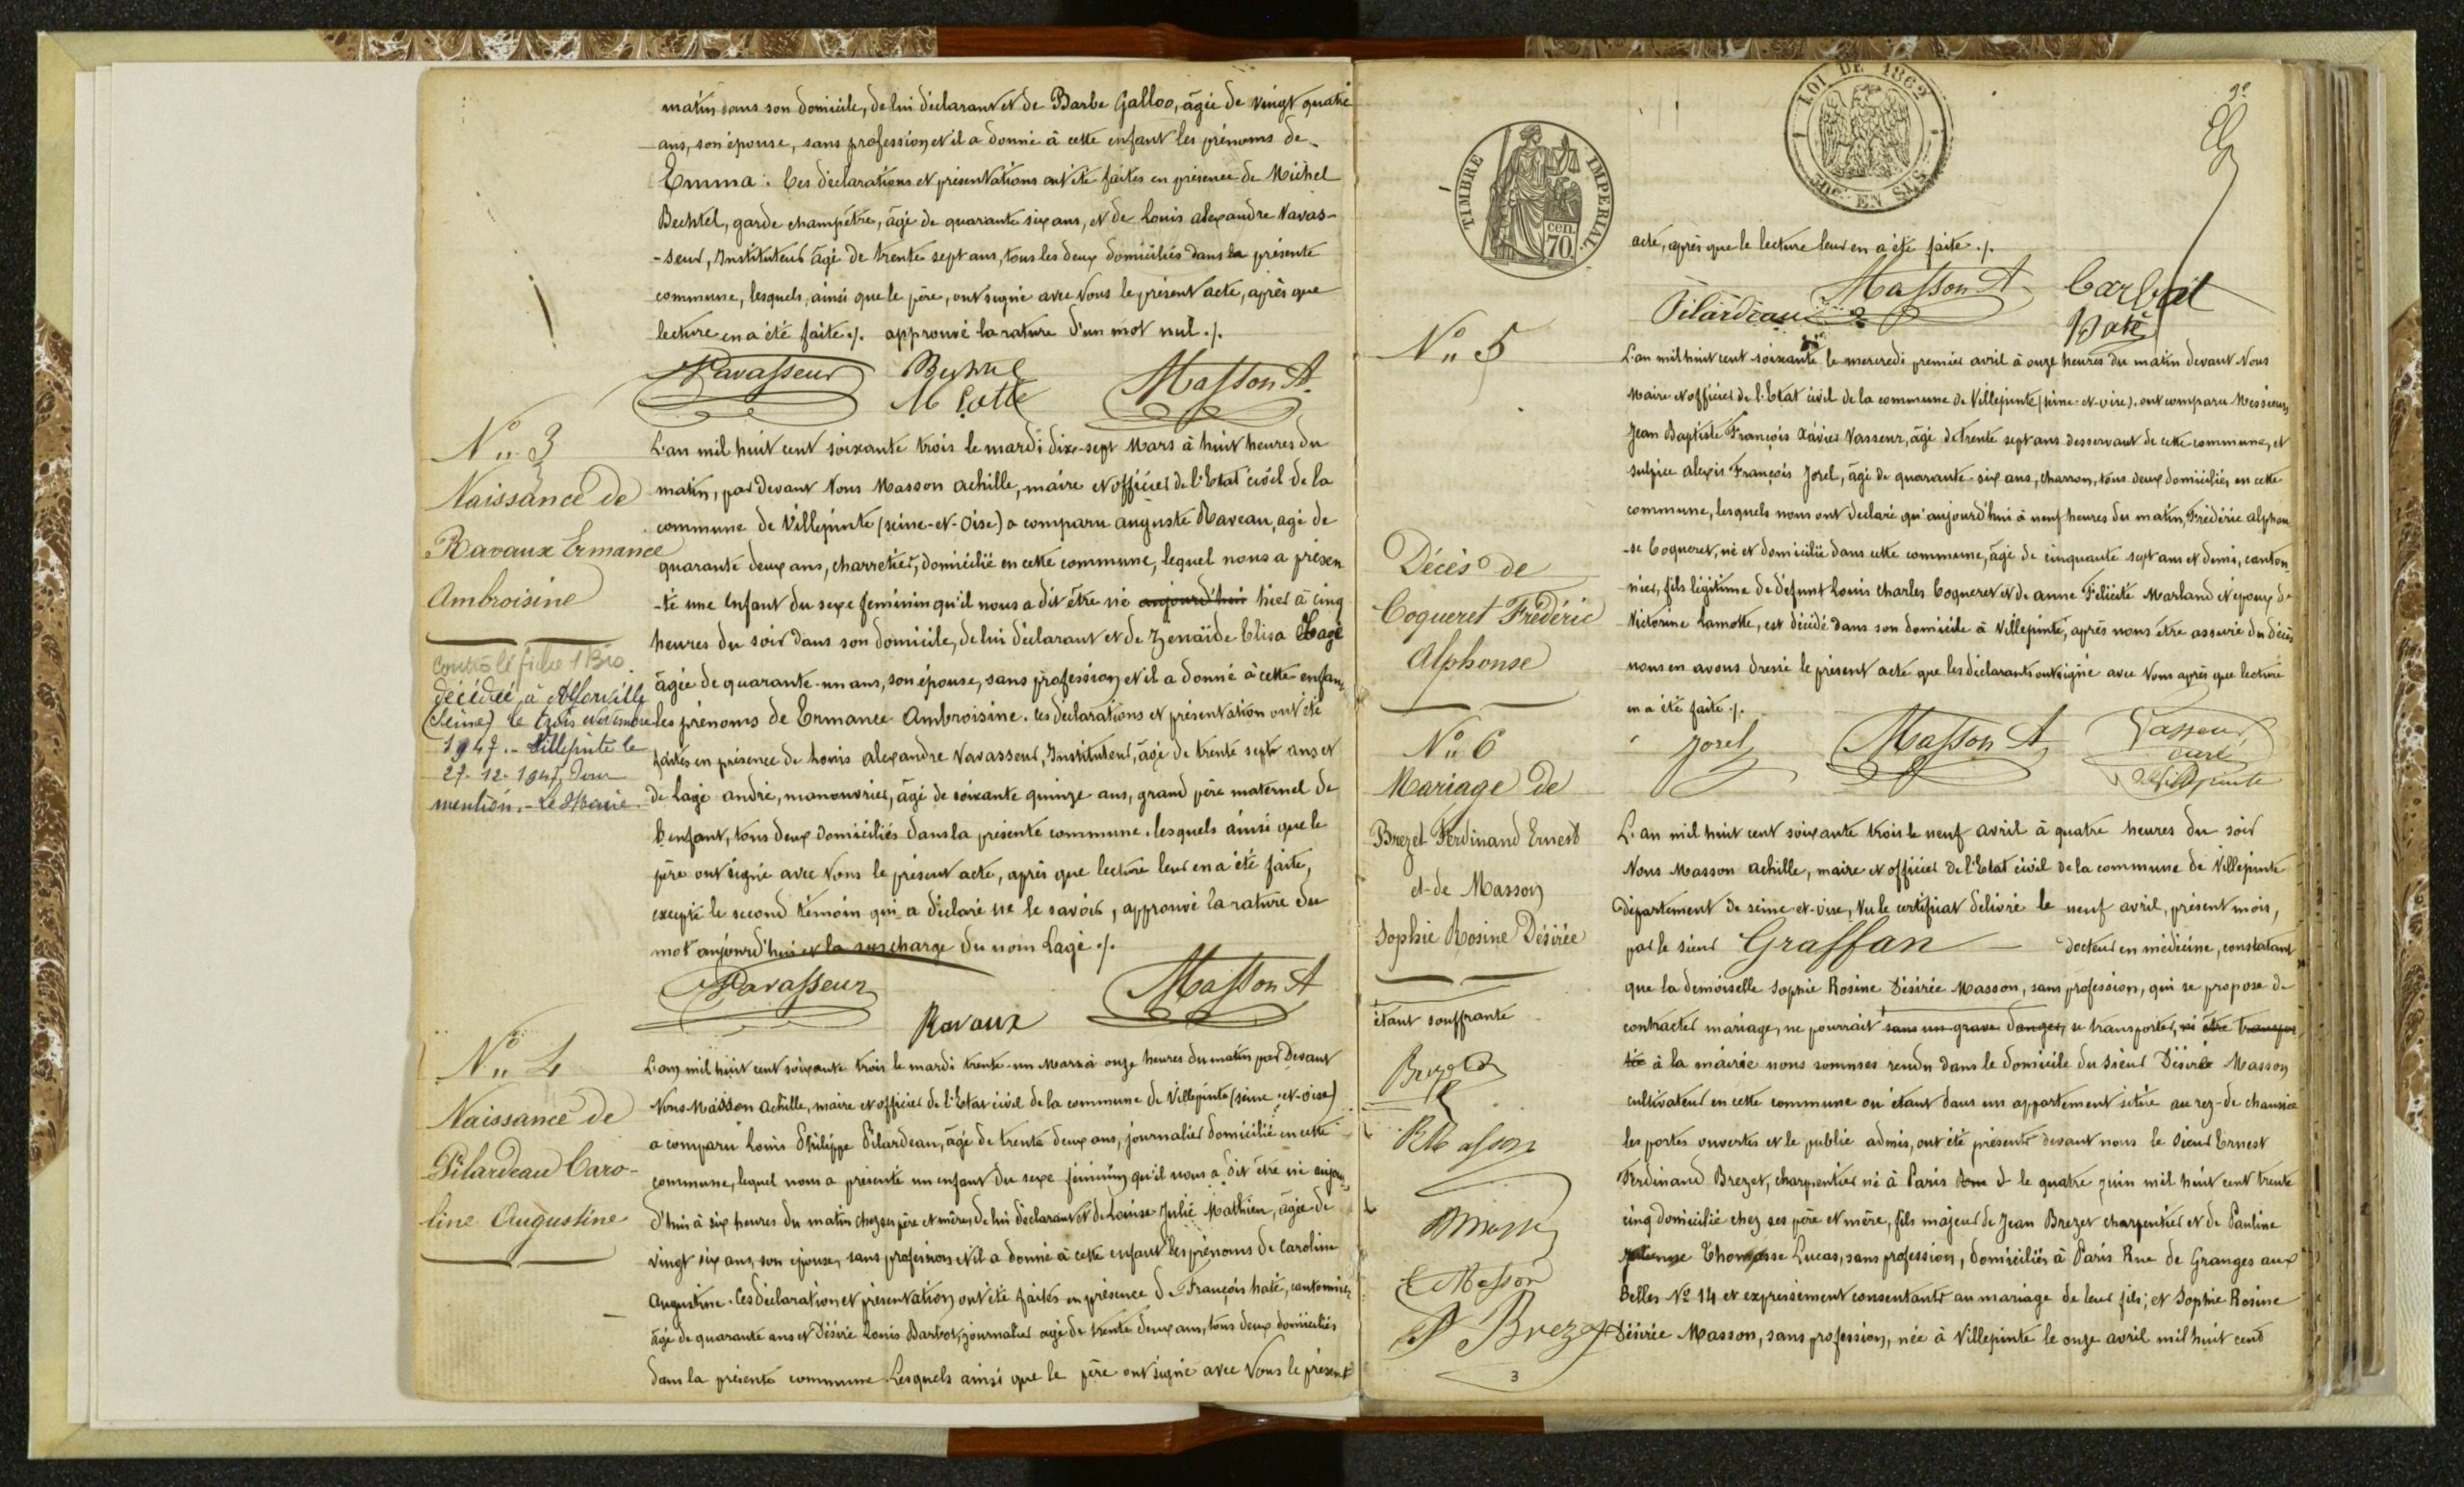 matin dans son domicile, de lui déclarant et de Barbe Galloo, âgée de vingt quatre
ans, son épouse, sans profession et il a donné à cette enfant les prénoms de
Emma. Ces déclarations et présentations ont été faites en présence de Michel
Bechtel, garde champêtre, âgé de quarante six ans, et de Louis alexandre Navas-
-seur, Instituteur âgé de trente sept ans, tous les deux domiciliés dans la présente
commune, lesquels, ainsi que le père, ont signé avec Nous le présent acte, après que
lecture en a été faite ./. approuvé la rature d'un mot nul ./.
Navasseur Bechtel Masson A
M Cotte
N° 3
Naissance de
Ravaux Ermance
Ambroisine
controlé fiche 1 Bro
décédée à Alforville
(Seine) le trois décembre
1947.- Villepinte le
27-12-1947, Dont
mention.- Le Maire.
L'an mil huit cent soixante trois le mardi dix-sept Mars à huit heures du
matin, par devant Nous Masson Achille, maire et officier de l'Etat civil de la
commune de Villepinte (seine-et-Oise) a comparu auguste Raveau, agé de
quarante deux ans, charretier, domicilié en cette commune, lequel nous a présen
-té une Enfant du sexe feminin qu'il nous a dit être né aujourd'hui hier à cinq
heures du soir dans son domicile, de lui déclarant et de Zenaïde Elisa Lagé
âgée de quarante-un ans, son épouse, sans profession et il a donné à cette enfant
les prénoms de Ermance Ambroisine. les déclarations et présentation ont été
faites en présence de Louis alexandre Navasseur, Instituteur, âgé de trente sept ans et
de Lagé andré, manouvrier, âgé de soixante quinze ans, grand père maternel de
l'enfant, tous deux domiciliés dans la présente commune. lesquels ainsi que le
père ont signé avec Nous le présent acte, après que lecture leur en a été faite,
excepté le second témoin qui a déclaré ne le savoir, approuvé la rature du
mot aujourd'hui et la surcharge du nom Lagé ./.
Navasseur Ravaux Masson A
N° 4
Naissance de
Pilardeau Caro-
line Augustine
L'an mil huit cent soixante trois le mardi trente-un Mars à onze heures du matin par Devant
Nous Masson Achille, maire et officier de l'Etat civil de la commune de Villepinte (seine-et-oise)
a comparu Louis Philippe Pilardeau, âgé de trente deux ans, journalier domicilié en cette
commune, lequel nous a présenté un enfant du sexe féminin qu'il nous a dit être né aujour-
d'hui à six heures du matin chez ses père et mère, de lui déclarant et de Louise Julie Mathieu, âgée de
vingt six ans, son épouse, sans profession et il a donné à cette enfant les prénoms de Caroline
Augustine. Ces déclaration et présentation ont été faites en présence de François haté, cantonnier
âgé de quarante ans et Désiré Louis Barbot, journalier agé de trente deux ans, tous deux domiciliés
dans la présente commune Lesquels ainsi que le père ont signé avec Nous le présent
TIMBRE IMPERIAL.
cen. 70
LOI DE 1862
EN SUS
acte, après que le lecture leur en a été faite ./.
Pilardeau Masson A
N° 5
Décès de
Coqueret Frédéric
Alphonse
L'an mil huit cent soixante trois le mercredi premier avril à onze heures du matin devant Nous
Maire et officier de l'Etat civil de la commune de Villepinte (seine-et-oise). ont comparu Messieurs
Jean Baptiste François Xavier Vasseur, âgé de trente sept ans desservant de cette commune, et
sulpice alexis François Jorel, âgé de quarante-six ans, charron, tous deux domiciliés en cette
commune, lesquels nous ont declaré qu'aujourd'hui à neuf heures du matin, Frédéric alphon
-se Coqueret, né et domicilié dans cette commune, âgé de cinquante sept ans et demi, canton-
nier, fils légitime de défunt Louis Charles Coqueret et de anne Félicité Marland et époux de
Victorine Lamotte, est décédé dans son domicile à Villepinte, après nous être assuré du décès
nous en avons dressé le présent acte que les déclarants ont signé avec Nous après que lecture
en a été faite ./.
Jorel Masson A Vasseur
curé
de Villepinte
N° 6
Mariage de
Brezet Ferdinand Ernest
et de Masson
Sophie Rosine Désirée
étant souffrante
Masson
E Masson
Brezet
3
L'an mil huit cent soixante trois le neuf avril à quatre heures du soir
Nous Masson Achille, maire et officier de l'Etat civil de la commune de Villepinte
département de seine-et-oise, Vu le certificat délivré le neuf avril, présent mois,
par le sieur Graffan docteur en médecine, constatant
que la demoiselle Sophie Rosine Désirée Masson, sans profession, qui se propose de
contracter mariage, ne pourrait sans un grave danger, se transporter, ni être transpor
tée à la mairie nous sommes rendu dans le domicile du sieur Désiré Masson
cultivateur en cette commune où étant dans un appartement situé au rez-de chaussée
les portes ouvertes et le public admis, ont été présents devant nous le sieur Ernest
Ferdinand Brezet, charpentier né à Paris le quatre juin mil huit cent trente
cinq domicilié chez ses père et mère, fils majeur de Jean Brezet charpentier et de Pauline
Thomasse Lucas, sans profession, domiciliés à Paris Rue de Granges aux
Belles N° 14 et expressément consentants au mariage de leur fils; et Sophie Rosine
Désirée Masson, sans profession, née à Villepinte le onze avril mil huit cent